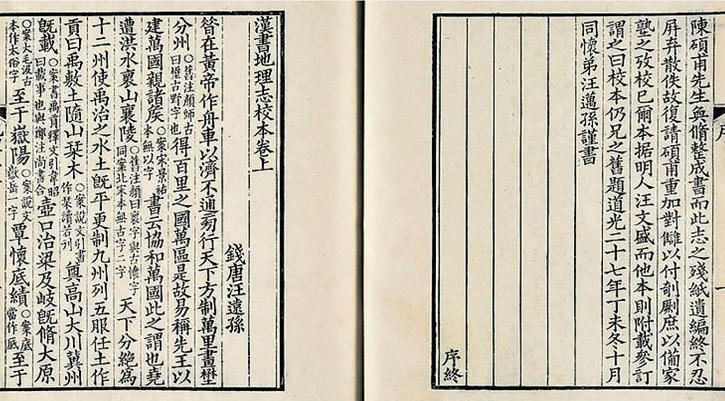 陳碩甫先生與脩整成書而此志之殘紙遺編終不忍
屏弃散佚故復請碩甫重加對讎以付剞劂庶以備家
塾之攷校已爾本据明人汪文盛而他本則附載參訂
謂之曰校本仍兄之舊題道光二十七年丁未冬十月
同懷弟汪邁孫謹書
序終
漢書地理志校本卷上
錢唐汪遠孫
昝在黃帝作舟車以濟不通旁行天下方制萬里畫壄
分州○舊注顏師古曰壄古野字也得百里之國萬區是故易稱先王以
建萬國親諸矦○案宋景祐本無以字書云協和萬國此之謂也堯
遭洪水襄山襄陵○舊注顏曰襄字與古懷字同案北宋本無古字二字天下分絶為
十二州使禹治之水土旣平更制九州列五服任土作
貢曰禹敷土隨山栞木○案說文引書作栞讀若刊奠高山大川冀州
旣載○案書禹貢釋文引韋昭曰載事也與鄭注尚書合壺口治梁及岐旣脩大原
○案大毛汲古本作太俗字至于嶽陽○案說文嶽岳一字覃懷底績○案底當作厎至于